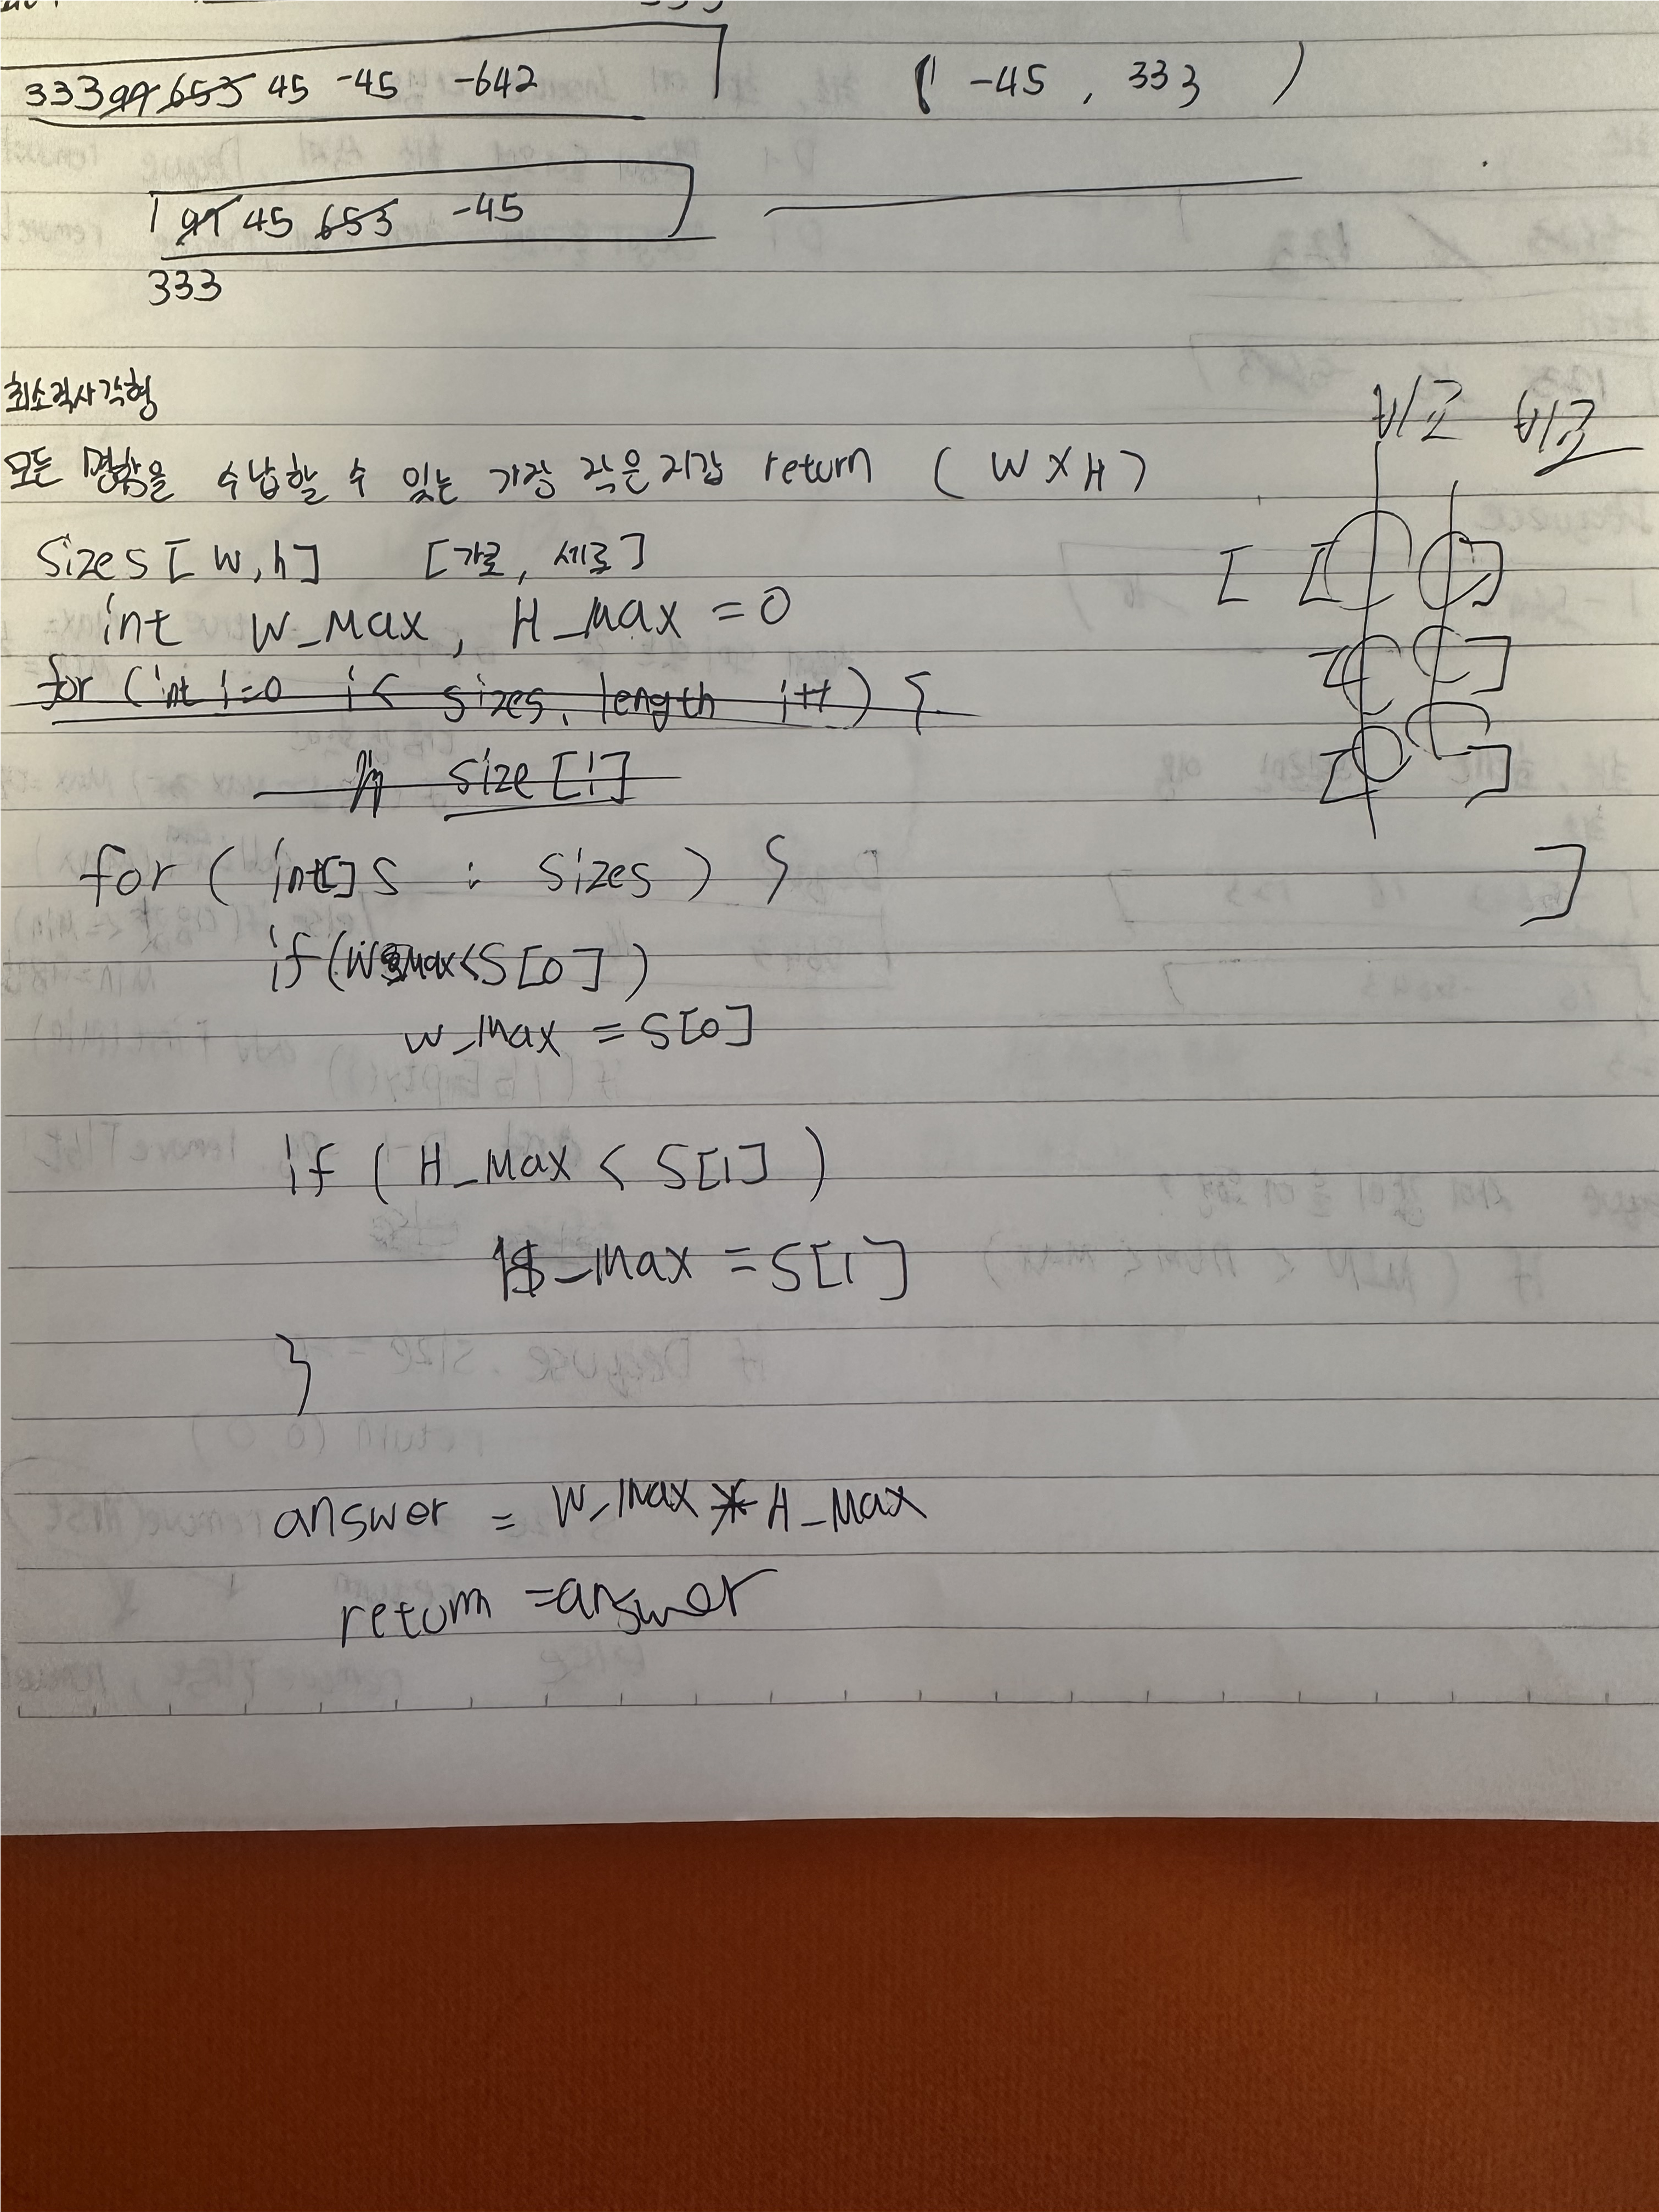 333 99 653 45 -45 -642
( -45 , 333 )
99 45 653 -45
333
최소직사각형
비교 비교
모든 명함을 수납할 수 있는 가장 작은 지갑 return (W X H)
sizes [w,h] [가로, 세로]
int W_Max, H_Max = 0
for (int i=0 i< sizes. length i++) {
size [i]
for ( int[] s : sizes ) {
if(W_Max<S[0])
w_Max = S[0]
if ( H_Max < S[1] )
H_Max = S[1]
}
answer = W_Max * H_Max
return =answer